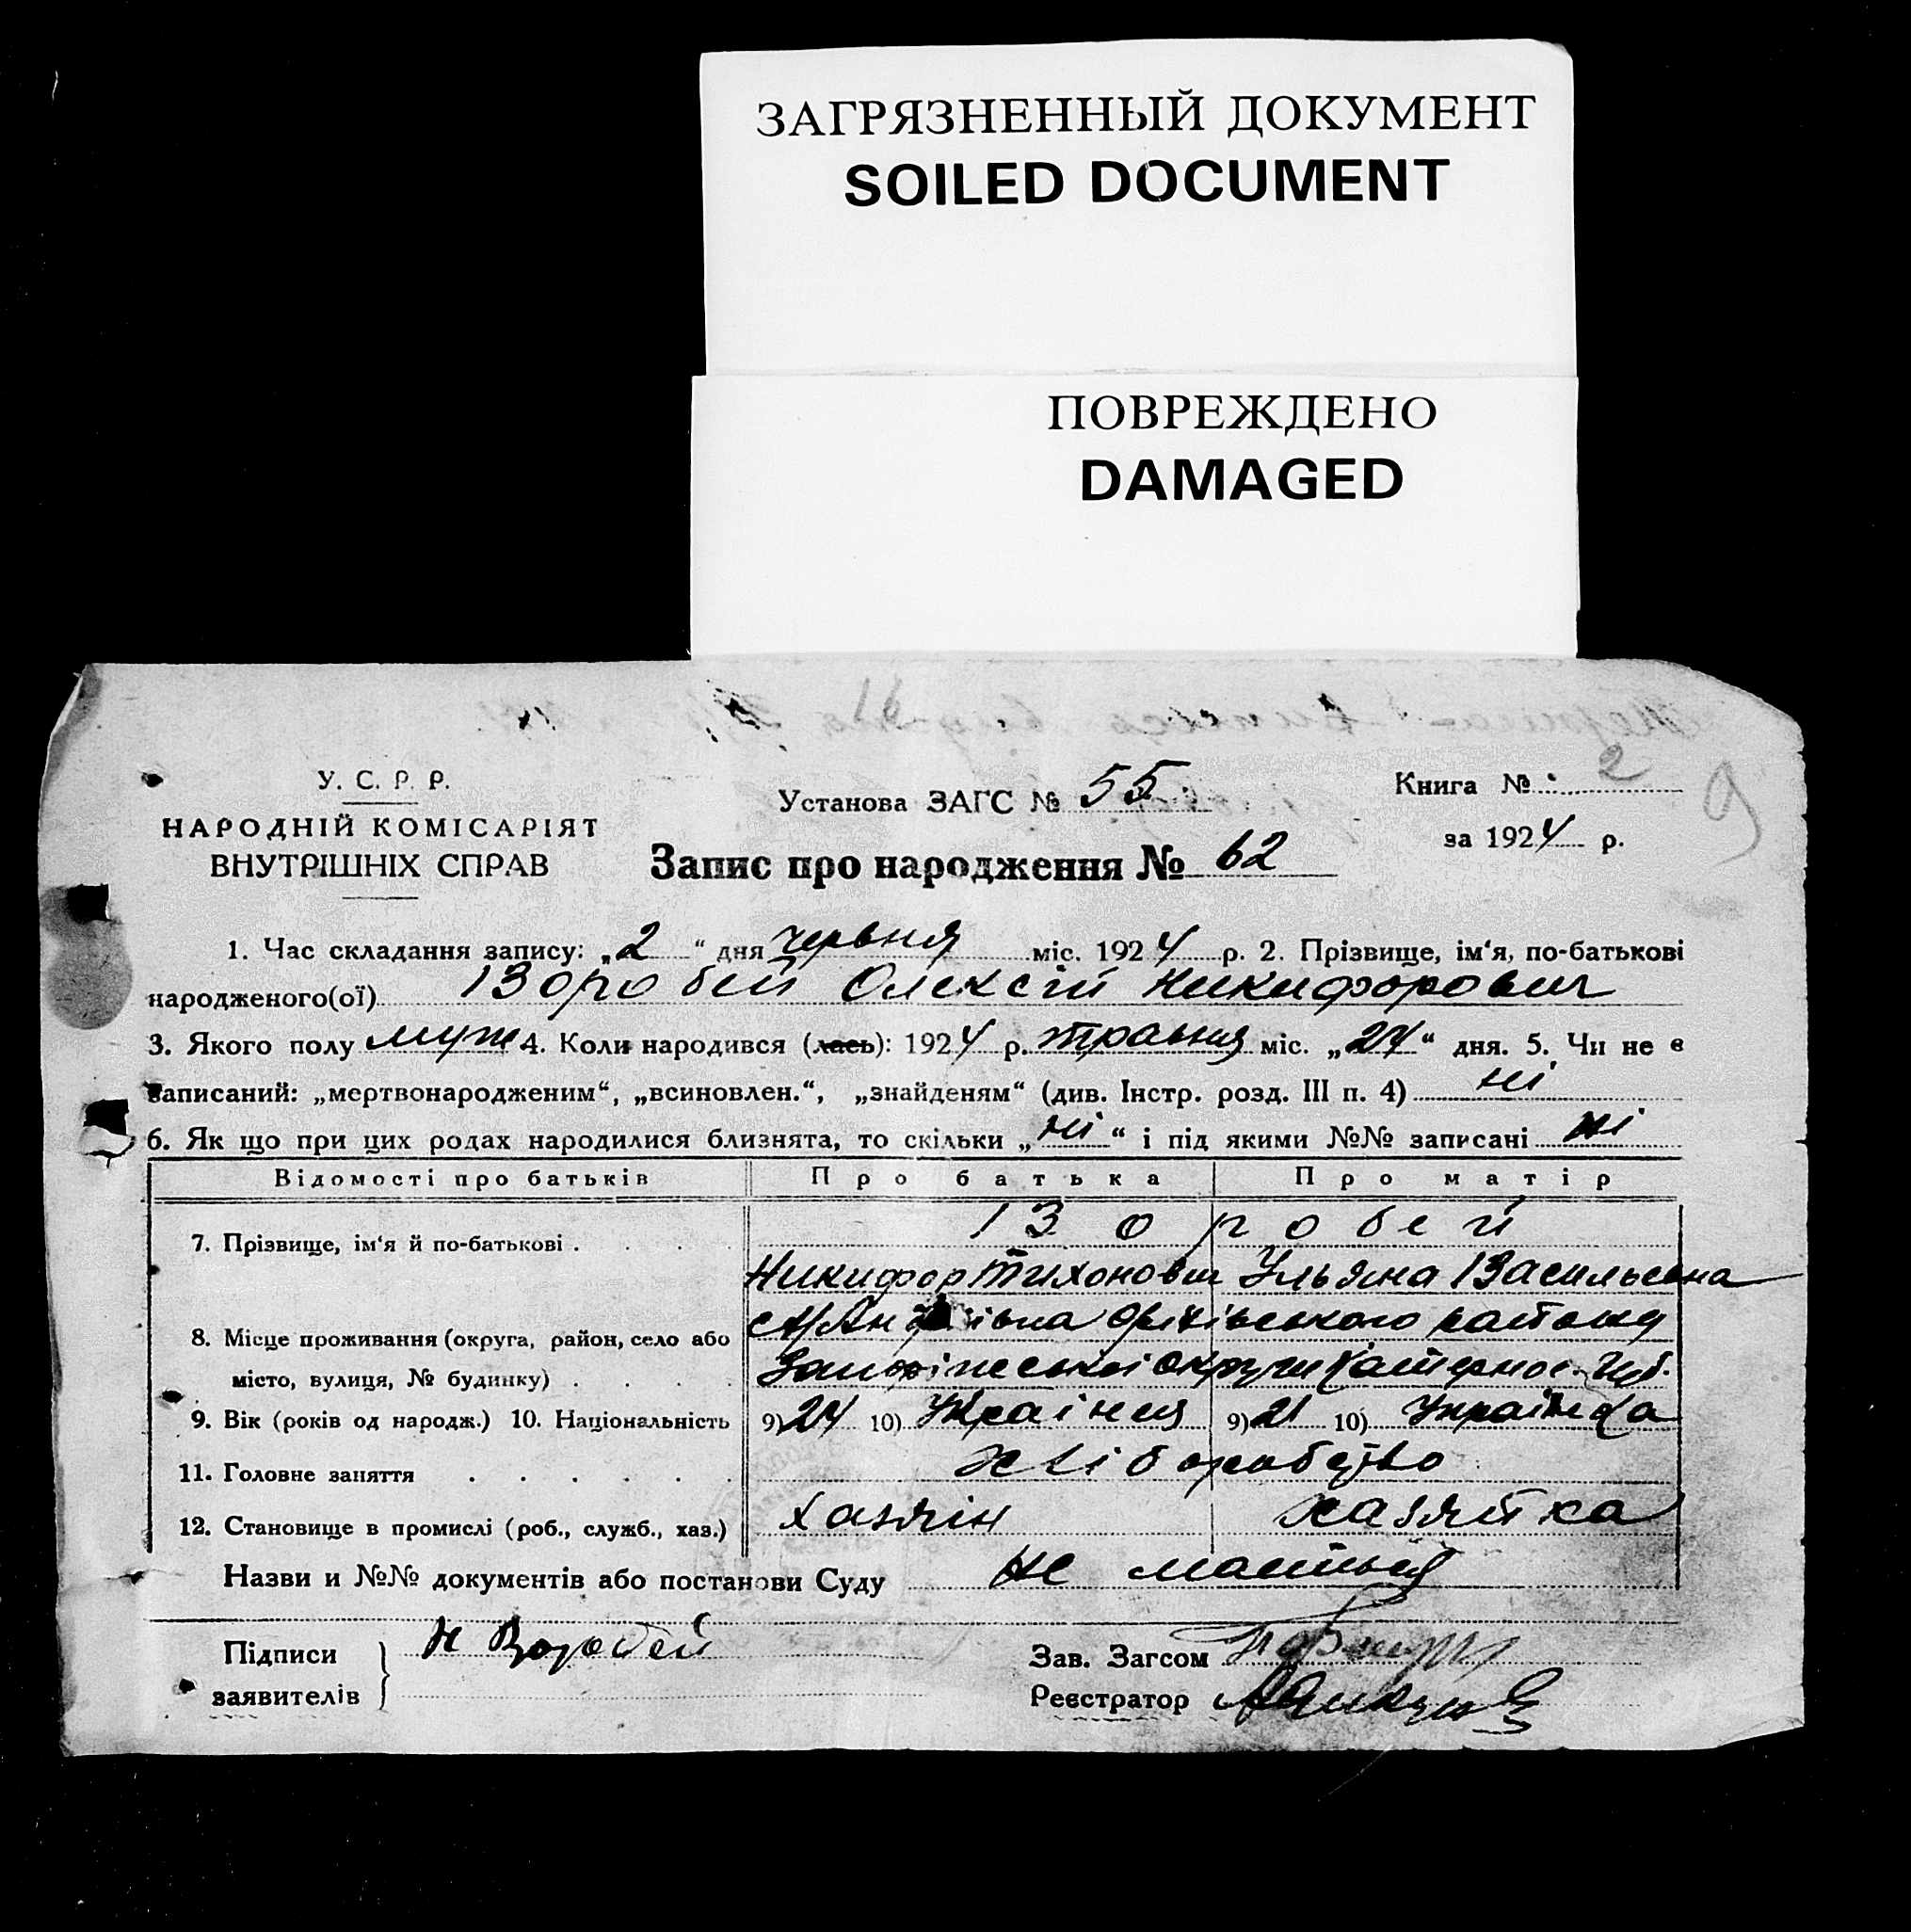 ЗАГРЯЗНЕННЫЙ ДОКУМЕНТ
SOILED DOCUMENT
ПОВРЕЖДЕНО
DAMAGED
У. С. Р. Р.
НАРОДНІЙ КОМІСАРІЯТ
ВНУТРІШНІХ СПРАВ
Установа ЗАГС № 55
Запис про народження № 62
Книга № 2
за 1924 р.
9
1. Час складання запису: „2“ дня червня міс. 1924 р. 2. Прізвище, ім‘я, по-батькові
народженого(ої) Воробей Олексій Никифорович
3. Якого полу муж 4. Коли народився (лась): 1924 р. травня міс. „24“ дня. 5. Чи не є
записаний: „мертвонародженим“, „всиновлен.“, „знайденям“ (див. Інстр. розд. III п. 4) ні
6. Як що при цих родах народилися близнята, то скільки „ні“ і під якими №№ записані ні
Відомості про батьків Про батька Про матір
7. Прізвище, ім‘я й по-батькові . . . . Воробей
Никифор Тихонович Ульяна Васильевна
8. Місце проживання (округа, район, село або
місто, вулиця, № будинку) . . . . округи
9. Вік (років од народж.) 10. Національність 9) 24 10) Українця 9) 21 10) Українка
11. Головне заняття . . . . . . Хліборобство
12. Становище в промислі (роб., служб., хаз.) хазяїн хазяйка
Назви и №№ документів або постанови Суду не мається
Підписи
заявителів
Н Воробей
Зав. Загсом
Реєстратор